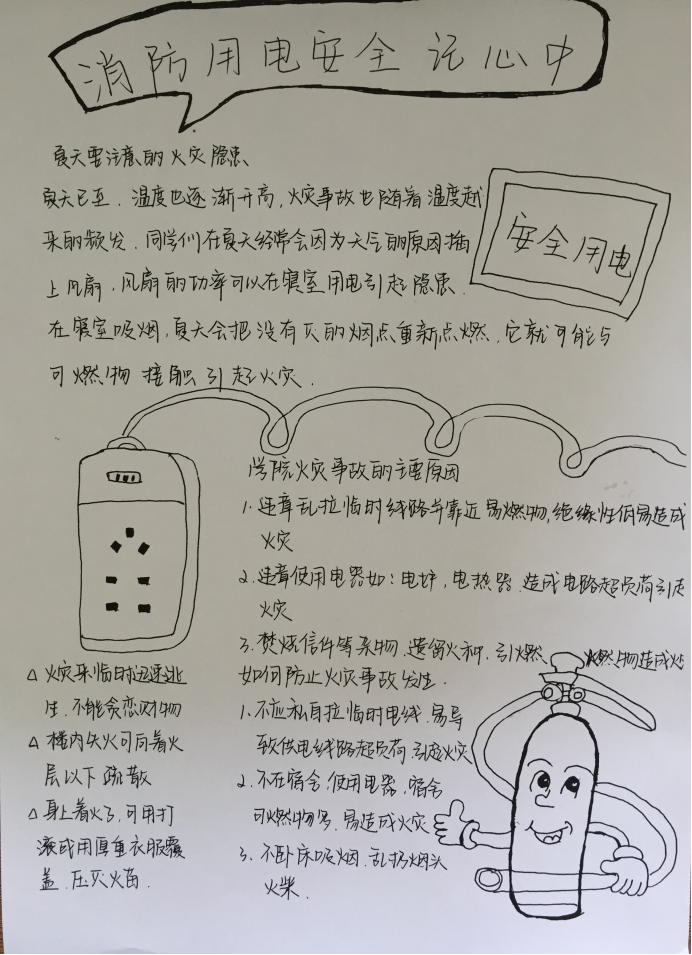 消防用电安全记心中
夏天要注意的火灾隐患
夏天已至.温度也逐渐升高,火灾事故也随着温度越
来的频发.同学们在夏天经常会因为天气的原因插
上风扇,风扇的功率可以在寝室用电引起隐患.
在寝室吸烟,夏天会把没有灭的烟点重新点燃.它就可能与
可燃物接触引起火灾.
安全用电
学院火灾事故的主要原因
1.违章乱拉临时线路并靠近易燃物,绝缘性低易造成
火灾
2.违章使用电器如:电炉,电热器.造成电路超负荷引起
火灾
3.焚烧信件等杂物.遗留火种.引燃 燃物造成火
如何防止火灾事故发生.
1.不应私自拉临时电线.易导
致供电线路超负荷引起火灾
2.不在宿舍.使用电器,宿舍
可燃物多.易造成火灾
3.不卧床吸烟.乱扔烟头
火柴.
△火灾来临时迅速逃
生.不能贪恋财物
△楼内失火可向着火
层以下疏散
△身上着火了,可用打
滚或用厚重衣服覆
盖.压灭火苗.